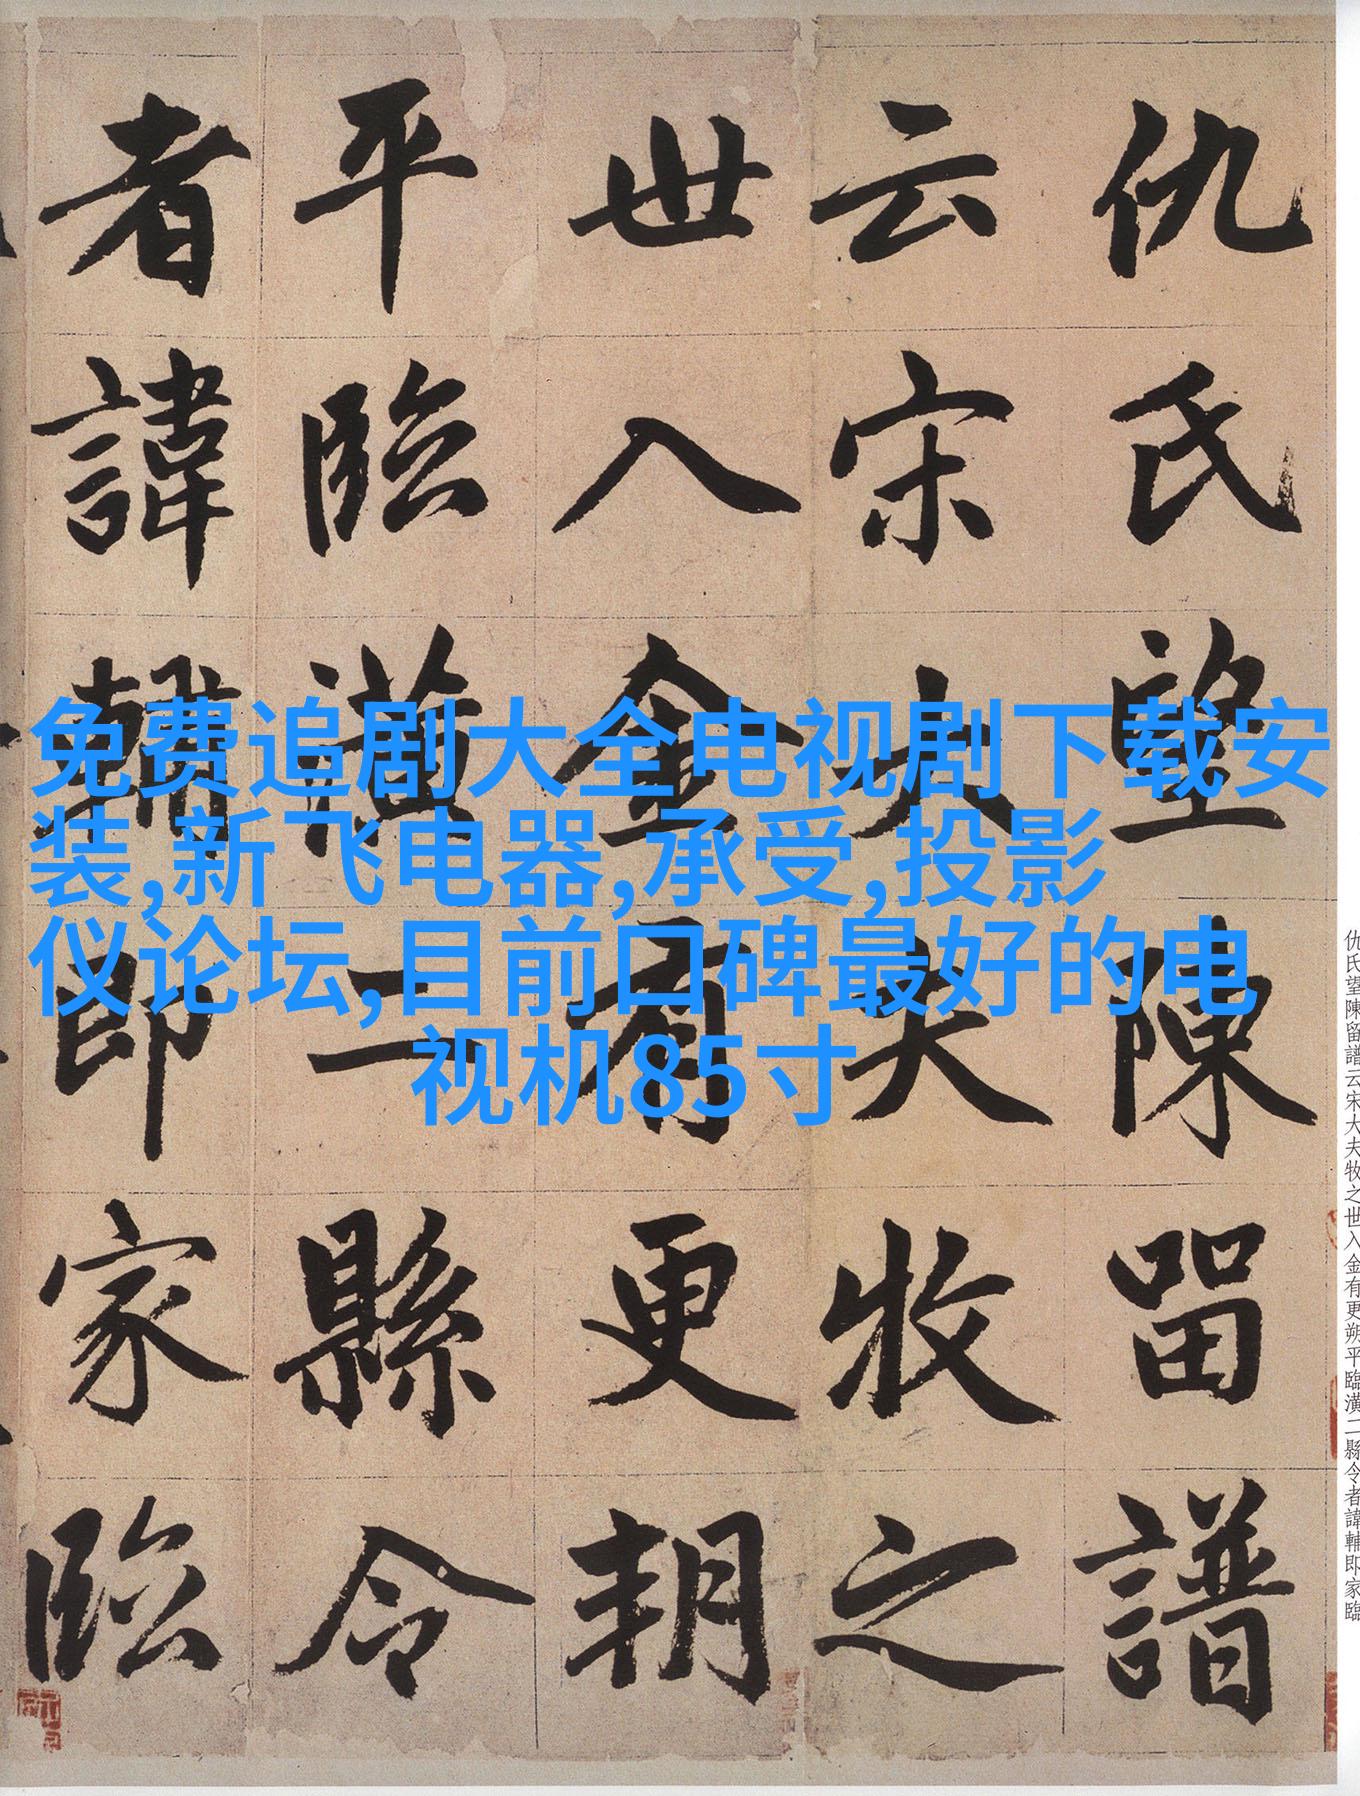 仇氏望陳留譜
云宋大夫牧之
世入金有更朔
平臨潢二縣令
者諱輔即家臨
免费追剧大全电视剧下载安
装,新飞电器,承受,投影
仪论坛,目前口碑最好的电
视机85寸
仇氏望陳留譜云宋大夫牧之世入金有更朔平臨潢二縣令者諱輔即家臨